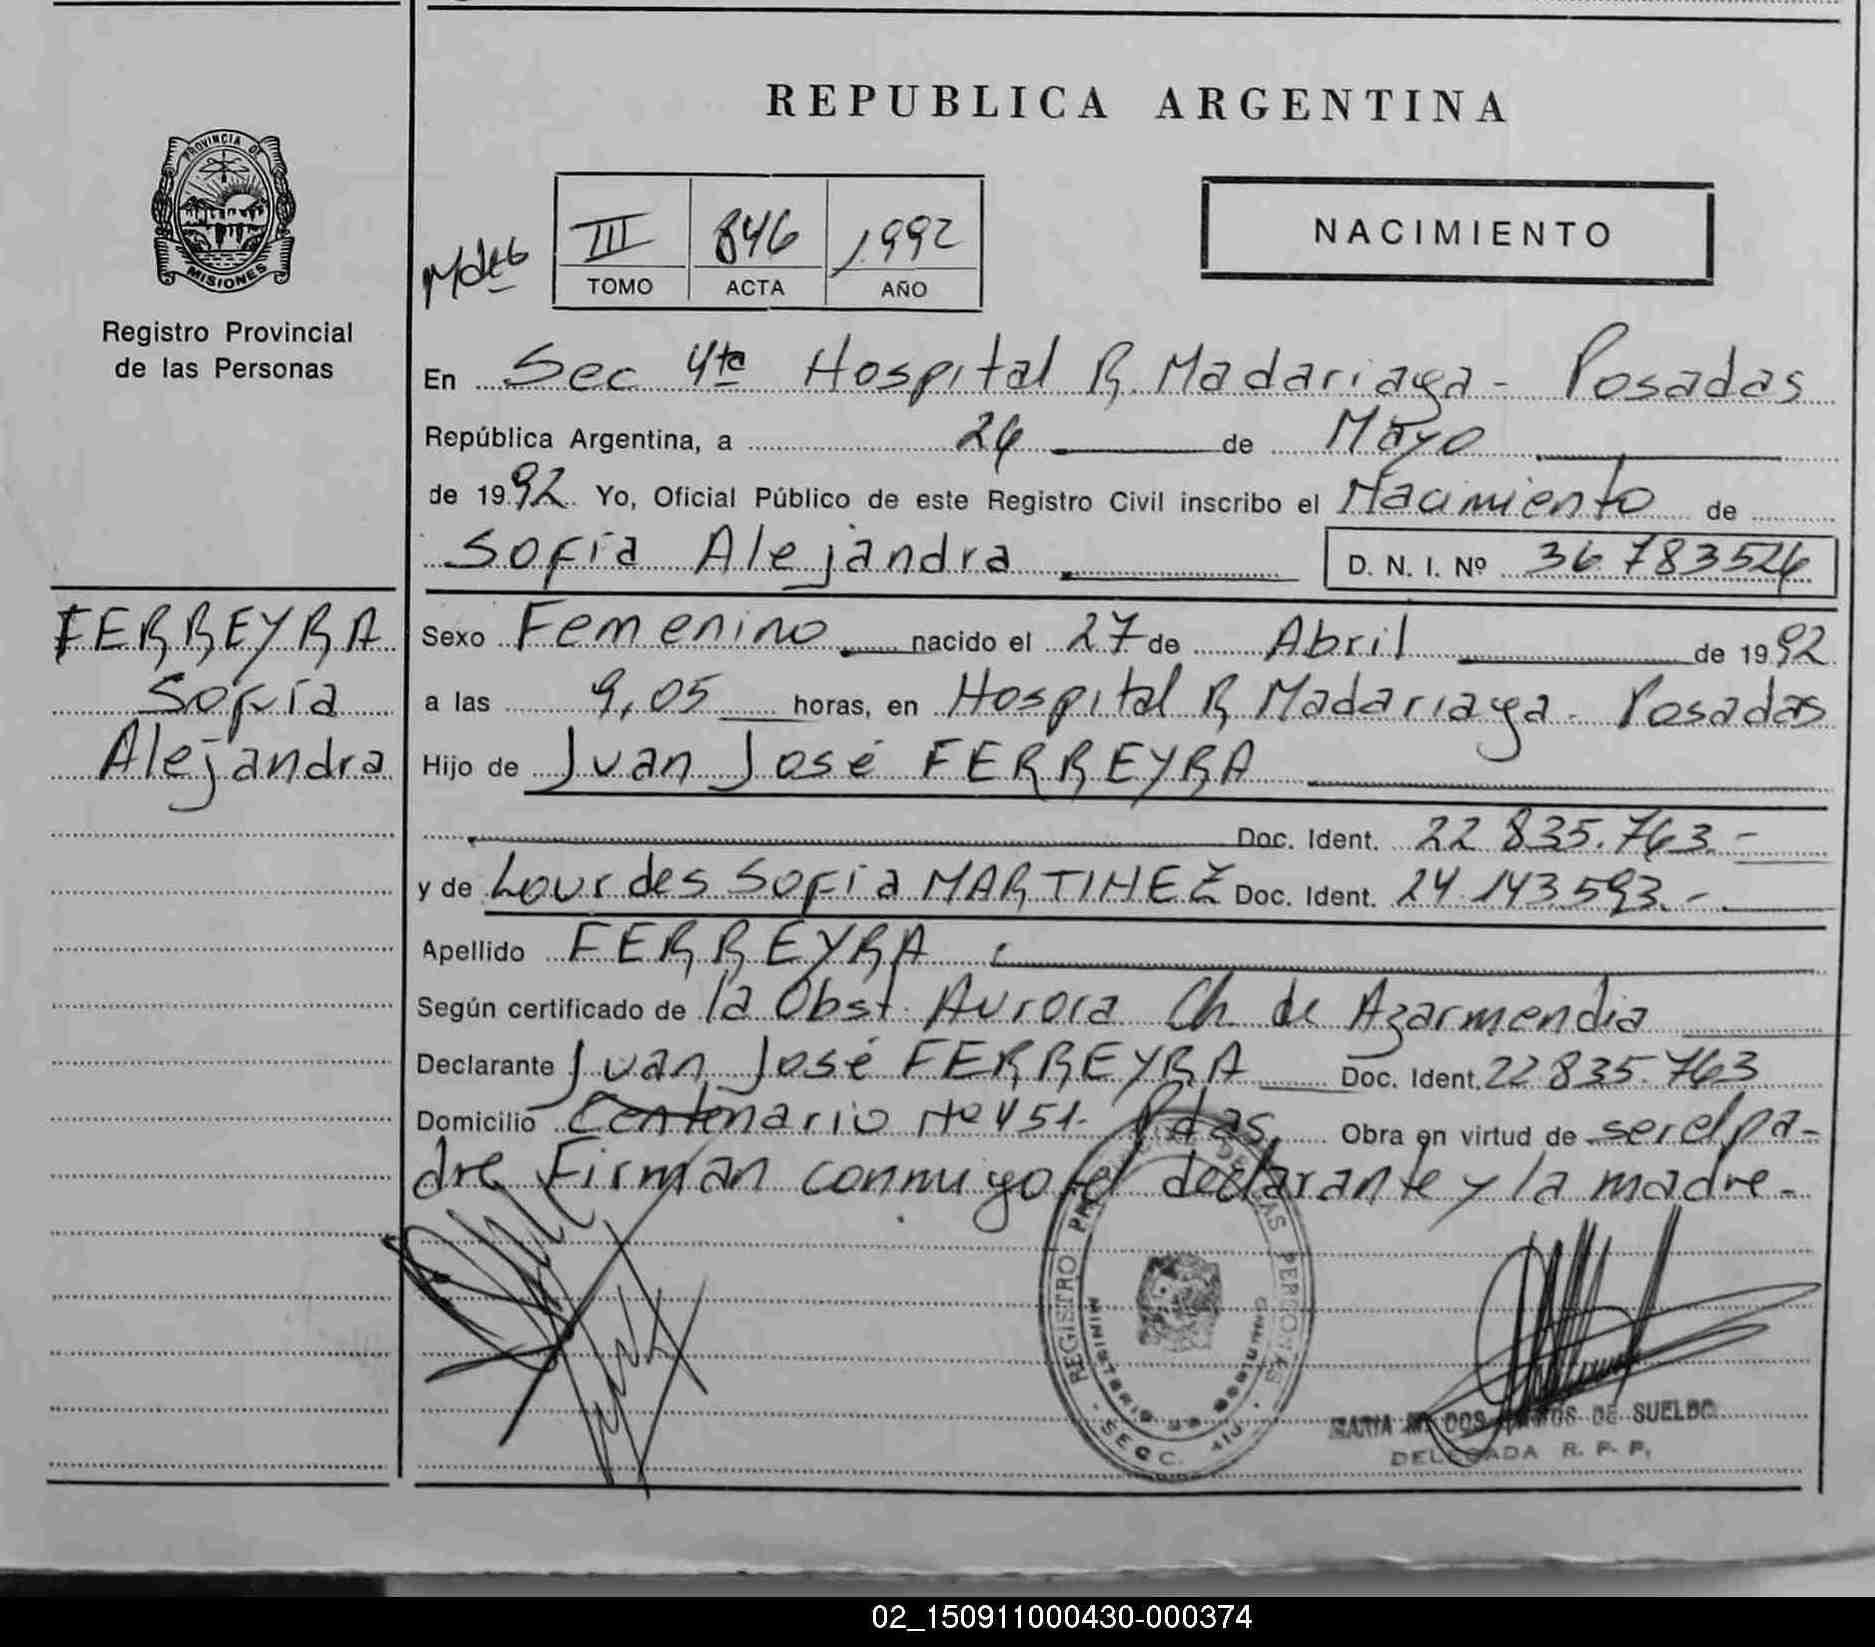 REPUBLICA ARGENTINA
PROVINCIA DE
MISIONES
Registro Provincial
de las Personas
III 846 1992
TOMO ACTA AÑO
NACIMIENTO
En Sec 4ta Hospital R. Madariaga - Posadas
República Argentina, a 26 de Mayo
de 1992 Yo, Oficial Público de este Registro Civil inscribo el Nacimiento de
Sofía Alejandra D. N. I. Nº 36.783526
FERREYRA
Sofía
Alejandra
Sexo Femenino nacido el 27 de Abril de 1992
a las 9,05 horas, en Hospital R. Madariaga - Posadas
Hijo de Juan José FERREYRA
Doc. Ident. 22 835.763.-
y de Lourdes Sofía MARTINEZ Doc. Ident. 24.143.593.-
Apellido FERREYRA
Según certificado de la Obst. Aurora Ch. de Azarmendia
Declarante Juan José FERREYRA Doc. Ident. 22 835.763
Domicilio Centenario Nº 451. Pdas. Obra en virtud de ser el pa-
dre Firman conmigo el declarante y la madre.-
REGISTRO DE LAS PERSONAS
MINISTERIO DE GOBIERNO
MARIA DOS SANTOS DE SUELDO
DELEGADA R. P. P.
02_150911000430-000374